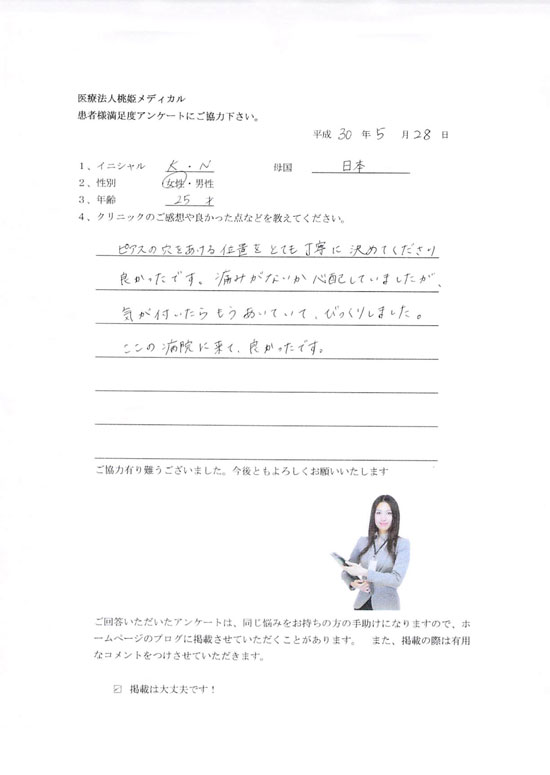 医療法人桃姫メディカル
患者様満足度アンケートにご協力下さい。
平成 30 年 5 月 28 日
1、イニシャル K・N 母国 日本
2、性別 女性・男性
3、年齢 25才
4、クリニックのご感想や良かった点などを教えてください。
ピアスの穴をあける位置をとても丁寧に決めてくださり
良かったです。痛みがないか心配していましたが、
気が付いたらもうあいていて、びっくりしました。
ここの病院に来て、良かったです。
ご協力有り難うございました。今後ともよろしくお願いいたします
ご回答いただいたアンケートは、同じ悩みをお持ちの方の手助けになりますので、ホ
ームページのブログに掲載させていただくことがあります。 また、掲載の際は有用
なコメントをつけさせていただきます。
☑ 掲載は大丈夫です！